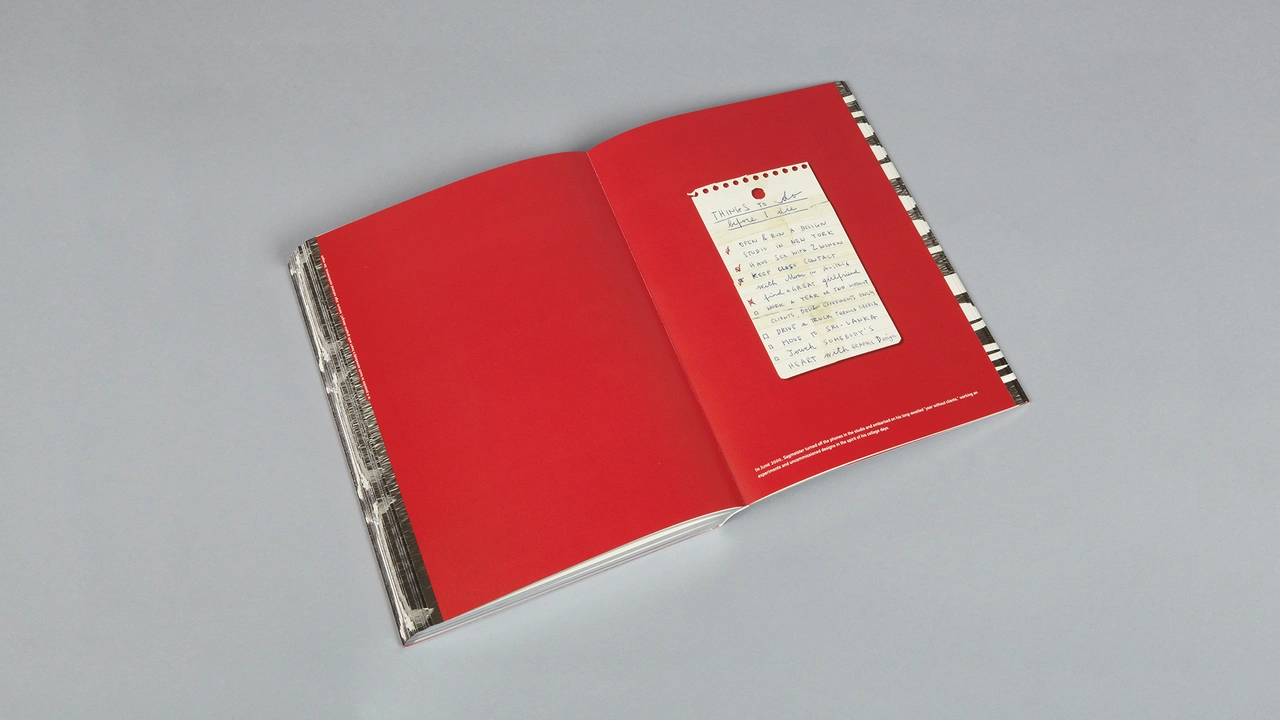 THINGS TO do
before I die
OPEN & RUN A DESIGN
STUDIO IN NEW YORK
HAVE SEX WITH 2 WOMEN
KEEP CLOSE CONTACT
with Mom in AUSTRIA
find a GREAT girlfriend
WORK A YEAR OR TWO WITHOUT
CLIENTS, DESIGN EXPERIMENTS ONLY
DRIVE A TRUCK THROUGH SIBERIA
MOVE TO SRI LANKA
Touch SOMEBODY'S
HEART with GRAPHIC Design
In JUNE 2000, Sagmeister turned off the phones in the studio and embarked on his long-awaited "year without clients," working on
experiments and uncommissioned designs in the spirit of his college days.